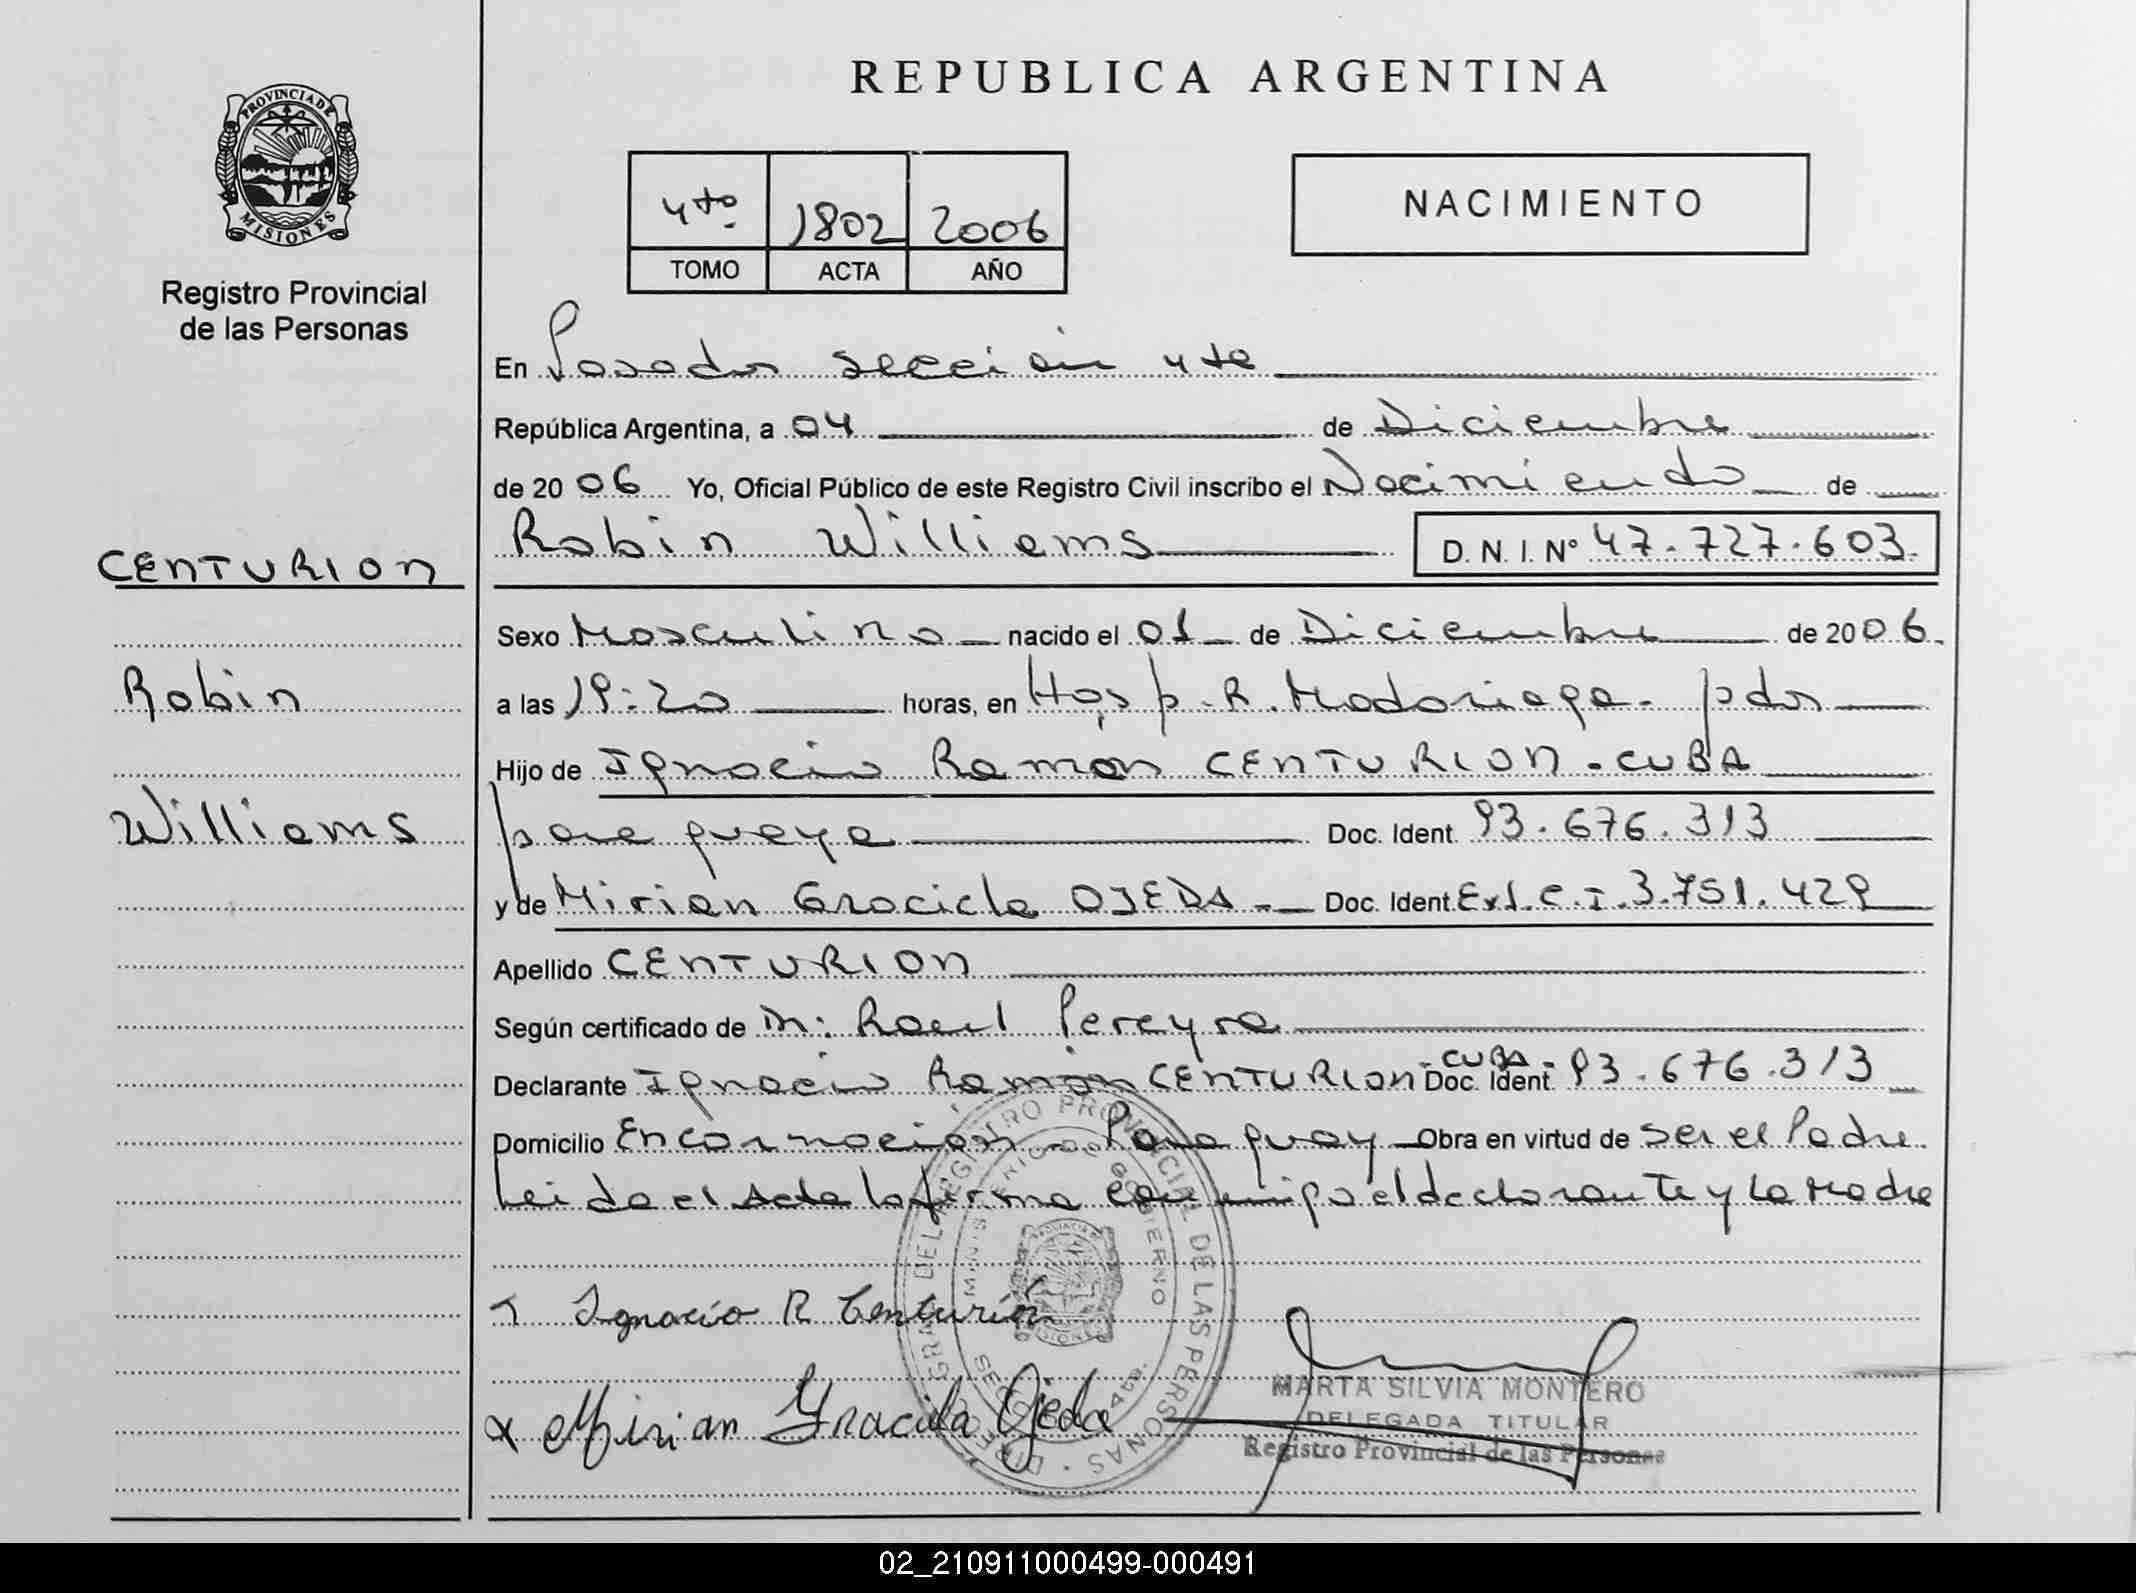 PROVINCIA DE
MISIONES
Registro Provincial
de las Personas
CENTURION
Robin
Williams
REPUBLICA ARGENTINA
4to 1802 2006
TOMO ACTA AÑO
NACIMIENTO
En Posadas sección 4ta
República Argentina, a 04 de Diciembre
de 2006 Yo, Oficial Público de este Registro Civil inscribo el Nacimiento de
Robin Williams D. N. I. Nº 47.727.603.
Sexo Masculino nacido el 01 de Diciembre de 2006.
a las 19:20 horas, en Hosp. R. Madariaga. pdas
Hijo de Ignacio Ramon CENTURION - CUBA
paraguaya Doc. Ident. 93.676.313
y de Mirian Graciela OJEDA - Doc. Ident. Ext. C.I. 3.751.429
Apellido CENTURION
Según certificado de Raul Pereyra
Declarante Ignacio Ramón CENTURION - CUBA - Doc. Ident. 93.676.313
Domicilio Encarnación - Paraguay Obra en virtud de ser el Padre
Leida el Acta la firma conmigo el declarante y la Madre
Ignacio R Centurión
x Mirian Graciela Ojeda
REGISTRO PROVINCIAL DE LAS PERSONAS
MINISTERIO DE GOBIERNO
MARTA SILVIA MONTERO
DELEGADA TITULAR
Registro Provincial de las Personas
02_210911000499-000491